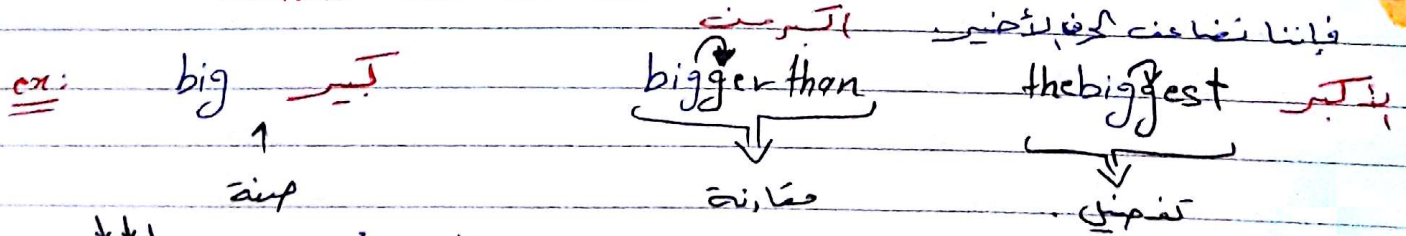 فإننا نضاعف الحرف الأخير
أكبر من
ex: big كبير bigger than the biggest الأكبر
صفة مقارنة تفضيل.